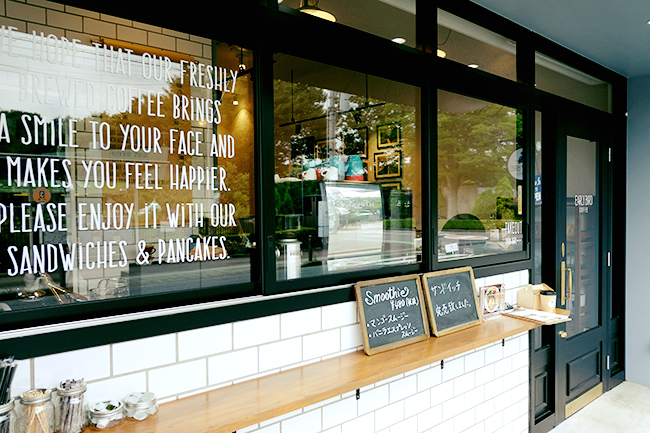 WE HOPE THAT OUR FRESHLY
BREWED COFFEE BRINGS
A SMILE TO YOUR FACE AND
MAKES YOU FEEL HAPPIER.
PLEASE ENJOY IT WITH OUR
SANDWICHES & PANCAKES.
Smoothie
・マンゴースムージー
・バニラエスプレッソ
スムージー
サンドイッチ
完売致しました。
EARLY BIRD
TAKEOUT